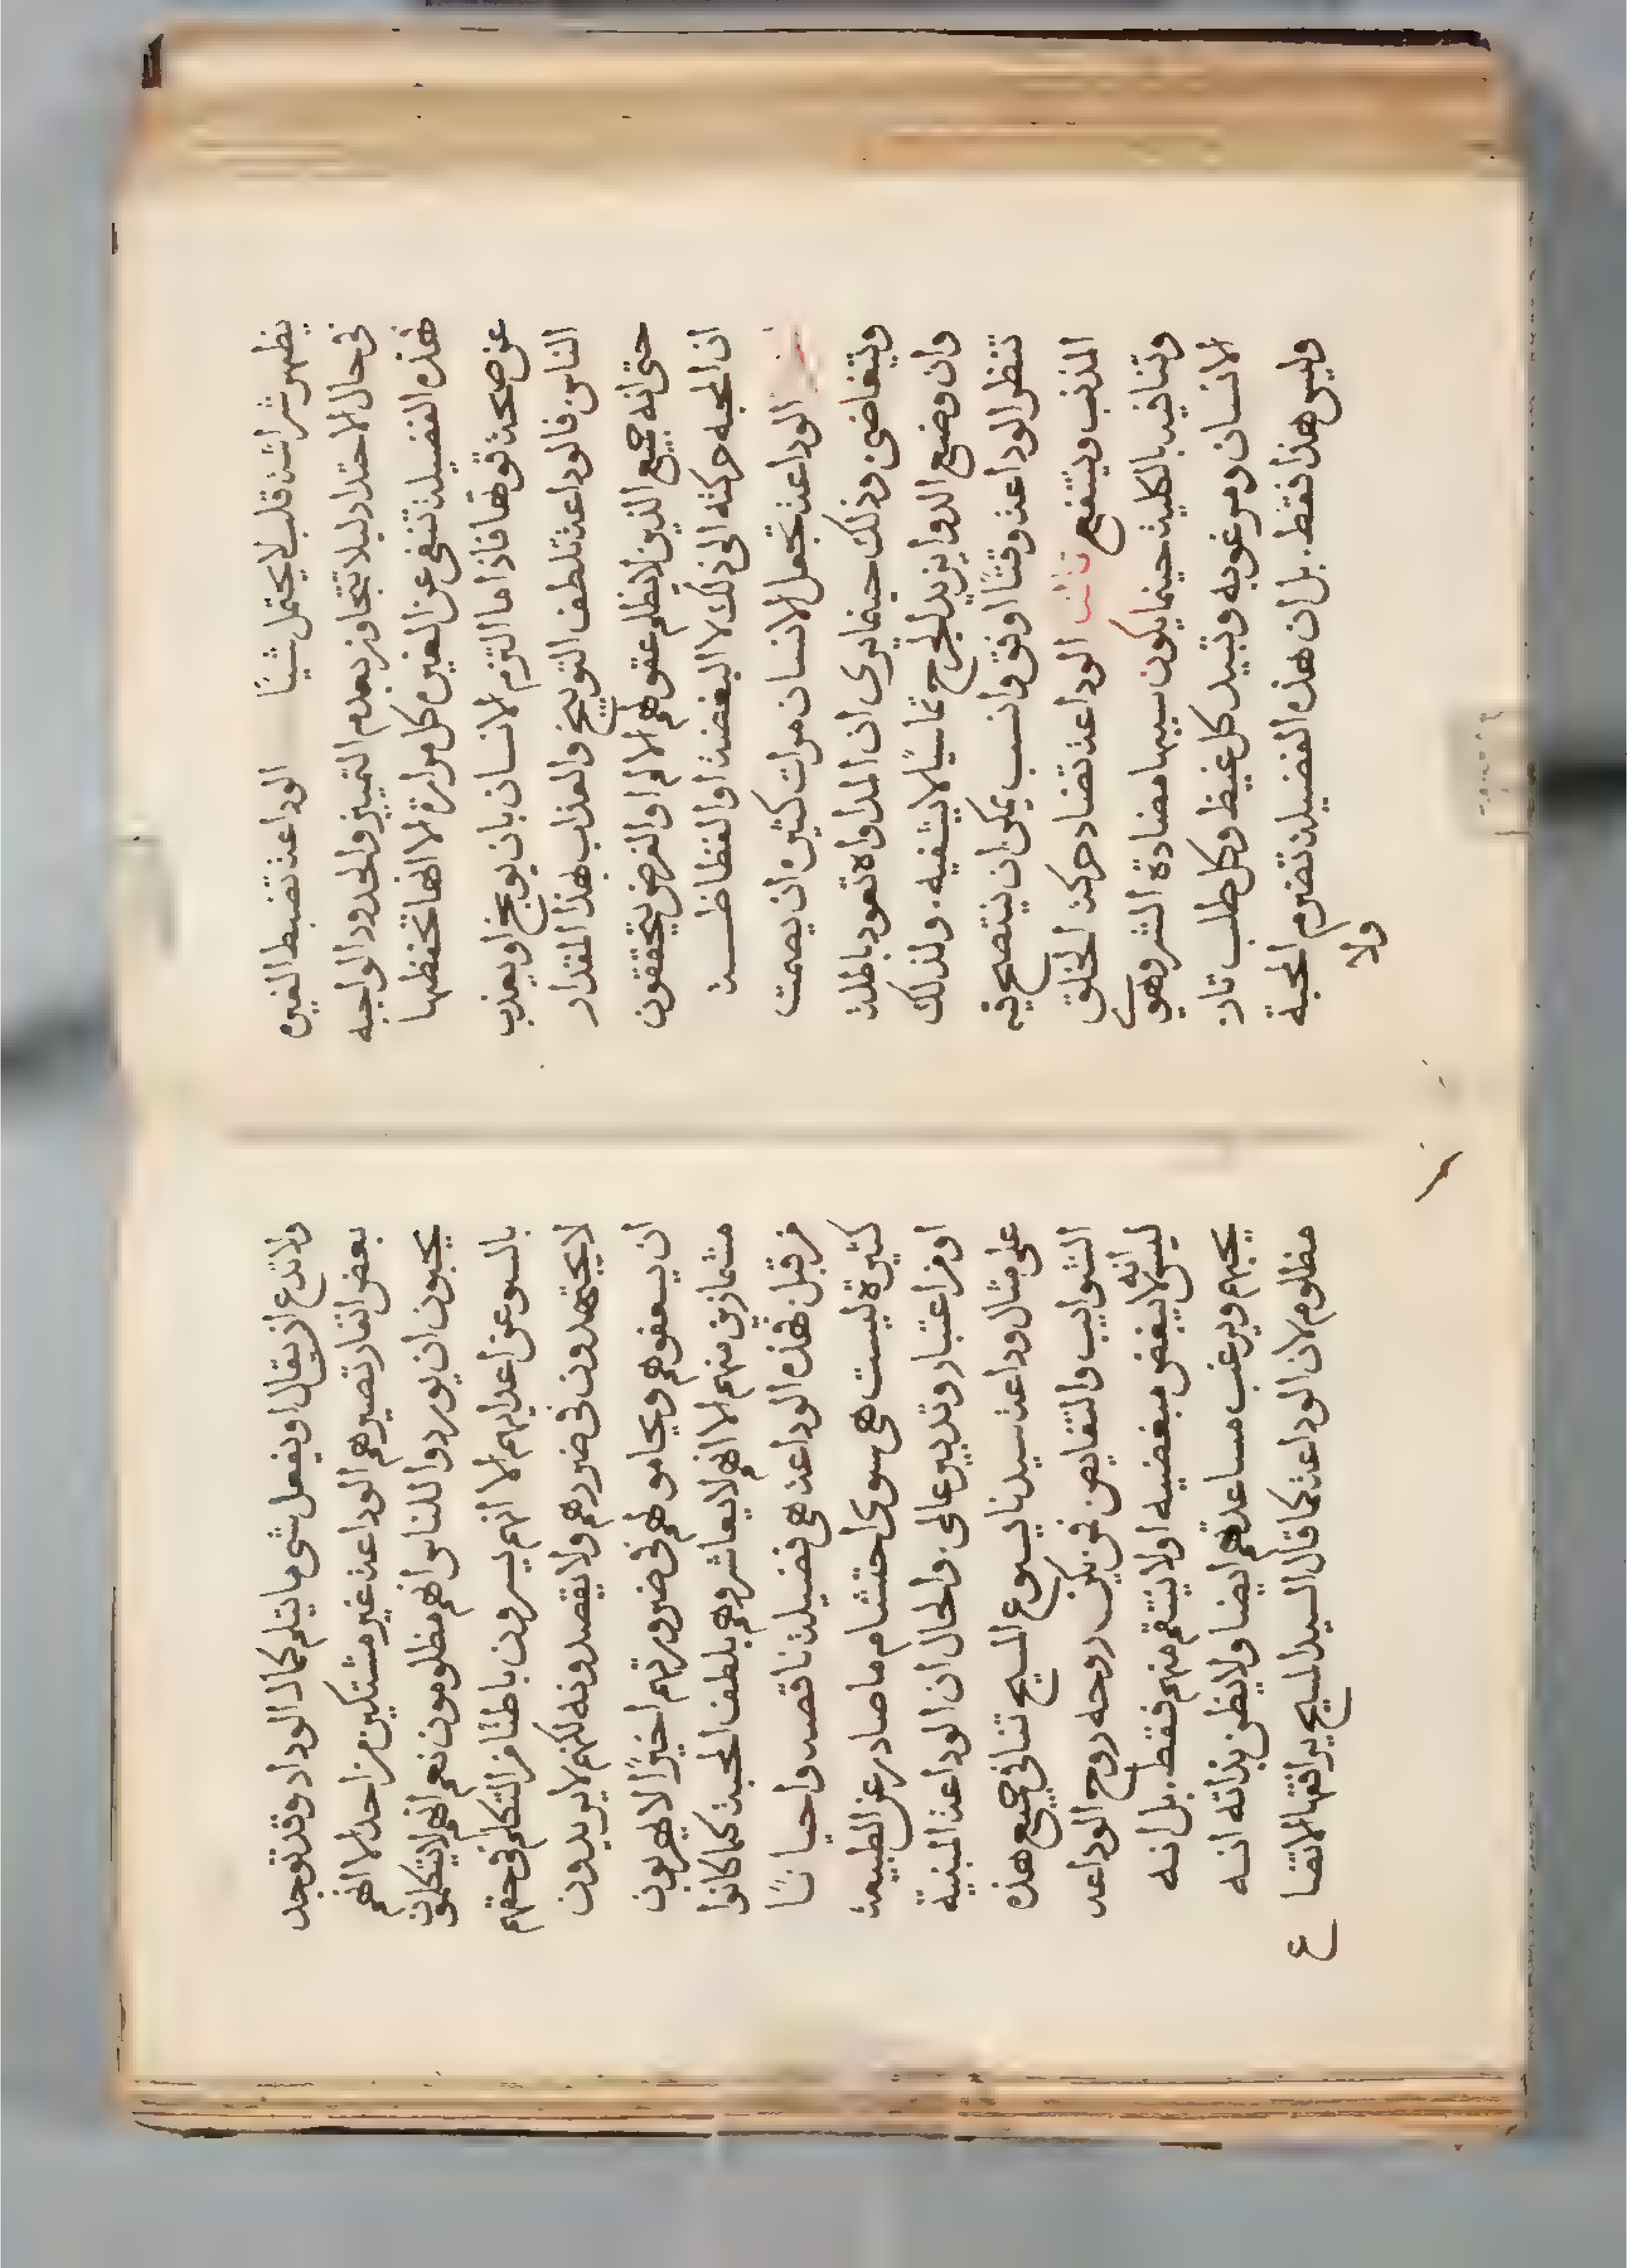 يظهر شراشد قلب لا يحتمل شيئًا الوداعه تضبط الغيره
في حال الاحتداد ليلا تتجاوز بعدم التمييز والحدود الواجبه
هذه الفضيله تنفي عن الغيره كل مراره الا انها تحفظها
عن صحه قوتها فاذا ما التزم الانسان بان يوبخ او يعذب
الناس فالوداعه تلطف التوبيخ والعذاب بهذا المقدار
حتي انه جميع الذين لا يظلم عقولهم الالم او الغرض يتحققون
ان المحبه حركته الي ذلك لا البغضه او الفظاظه
الوداعه تجعل الانسان مرات كثيره ان يصمت
ويتغاضي وذلك حينما يري ان المداواه تعود باطله
وان وضع الدوا يزيد الجرح تماسيًا لا يشفيه. ولذلك
تنظر الوداعه وقتًا اوفق وانسب يمكن ان ينتصح فيه
المذنب وينتفع ثالثا الوداعه تضاد حركه الخلق
وتنافيه بالكليه حينما يكون سببها مضادة الشر وهي
الانسان ومرغوبه وتبيد كل غيظ وكل طلب ثار
وليس هذا فقط. بل ان هذه الفضيله تضرم المحبة
ولا
ولا تدع ان يقال او يفعل شي ما يثلم كمال الوداد وقد توجد
بعض انفار تصيرهم الوداعه غير مشتكين من احد الا انهم
يحبون ان يوردوا للناس انهم مظلومون نعم انهم لا يتكلمون
بالسو عن اعدايهم الا انهم يسرون باطنًا من التكلم في حقهم
لا يجتهدون في ضررهم ولا يقصدونه لكنهم لا يريدون
ان يسعفوهم ويحاموا لهم في ضرورتهم اخيرًا لا يهربون
مشمازين منهم الا انهم لا يعاشروهم بلطف المحبه كما كانوا
من قبل فهذه الوداعه هي فضيله ناقصه واحيانًا
كثيرة ليست هي سوي احتشام ما صادر عن الطبيعه
او من اعتبار وتدبير عالمي. والحال ان الوداعه المبنية
علي مثال وداعه سيدنا يسوع المسيح تنافي جميع هذه
الشوايب والنقايص فمن يكن روحه روح الوداعه
ليس انه لا يبغض مبغضيه او لا ينتقم منهم فقط. بل انه
يحبهم ويرغب مساعدتهم ايضا ولا يظن بذاته انه
مظلوم لان الوداعه كما قال السيد المسيح يرافقها الاتضا
ع